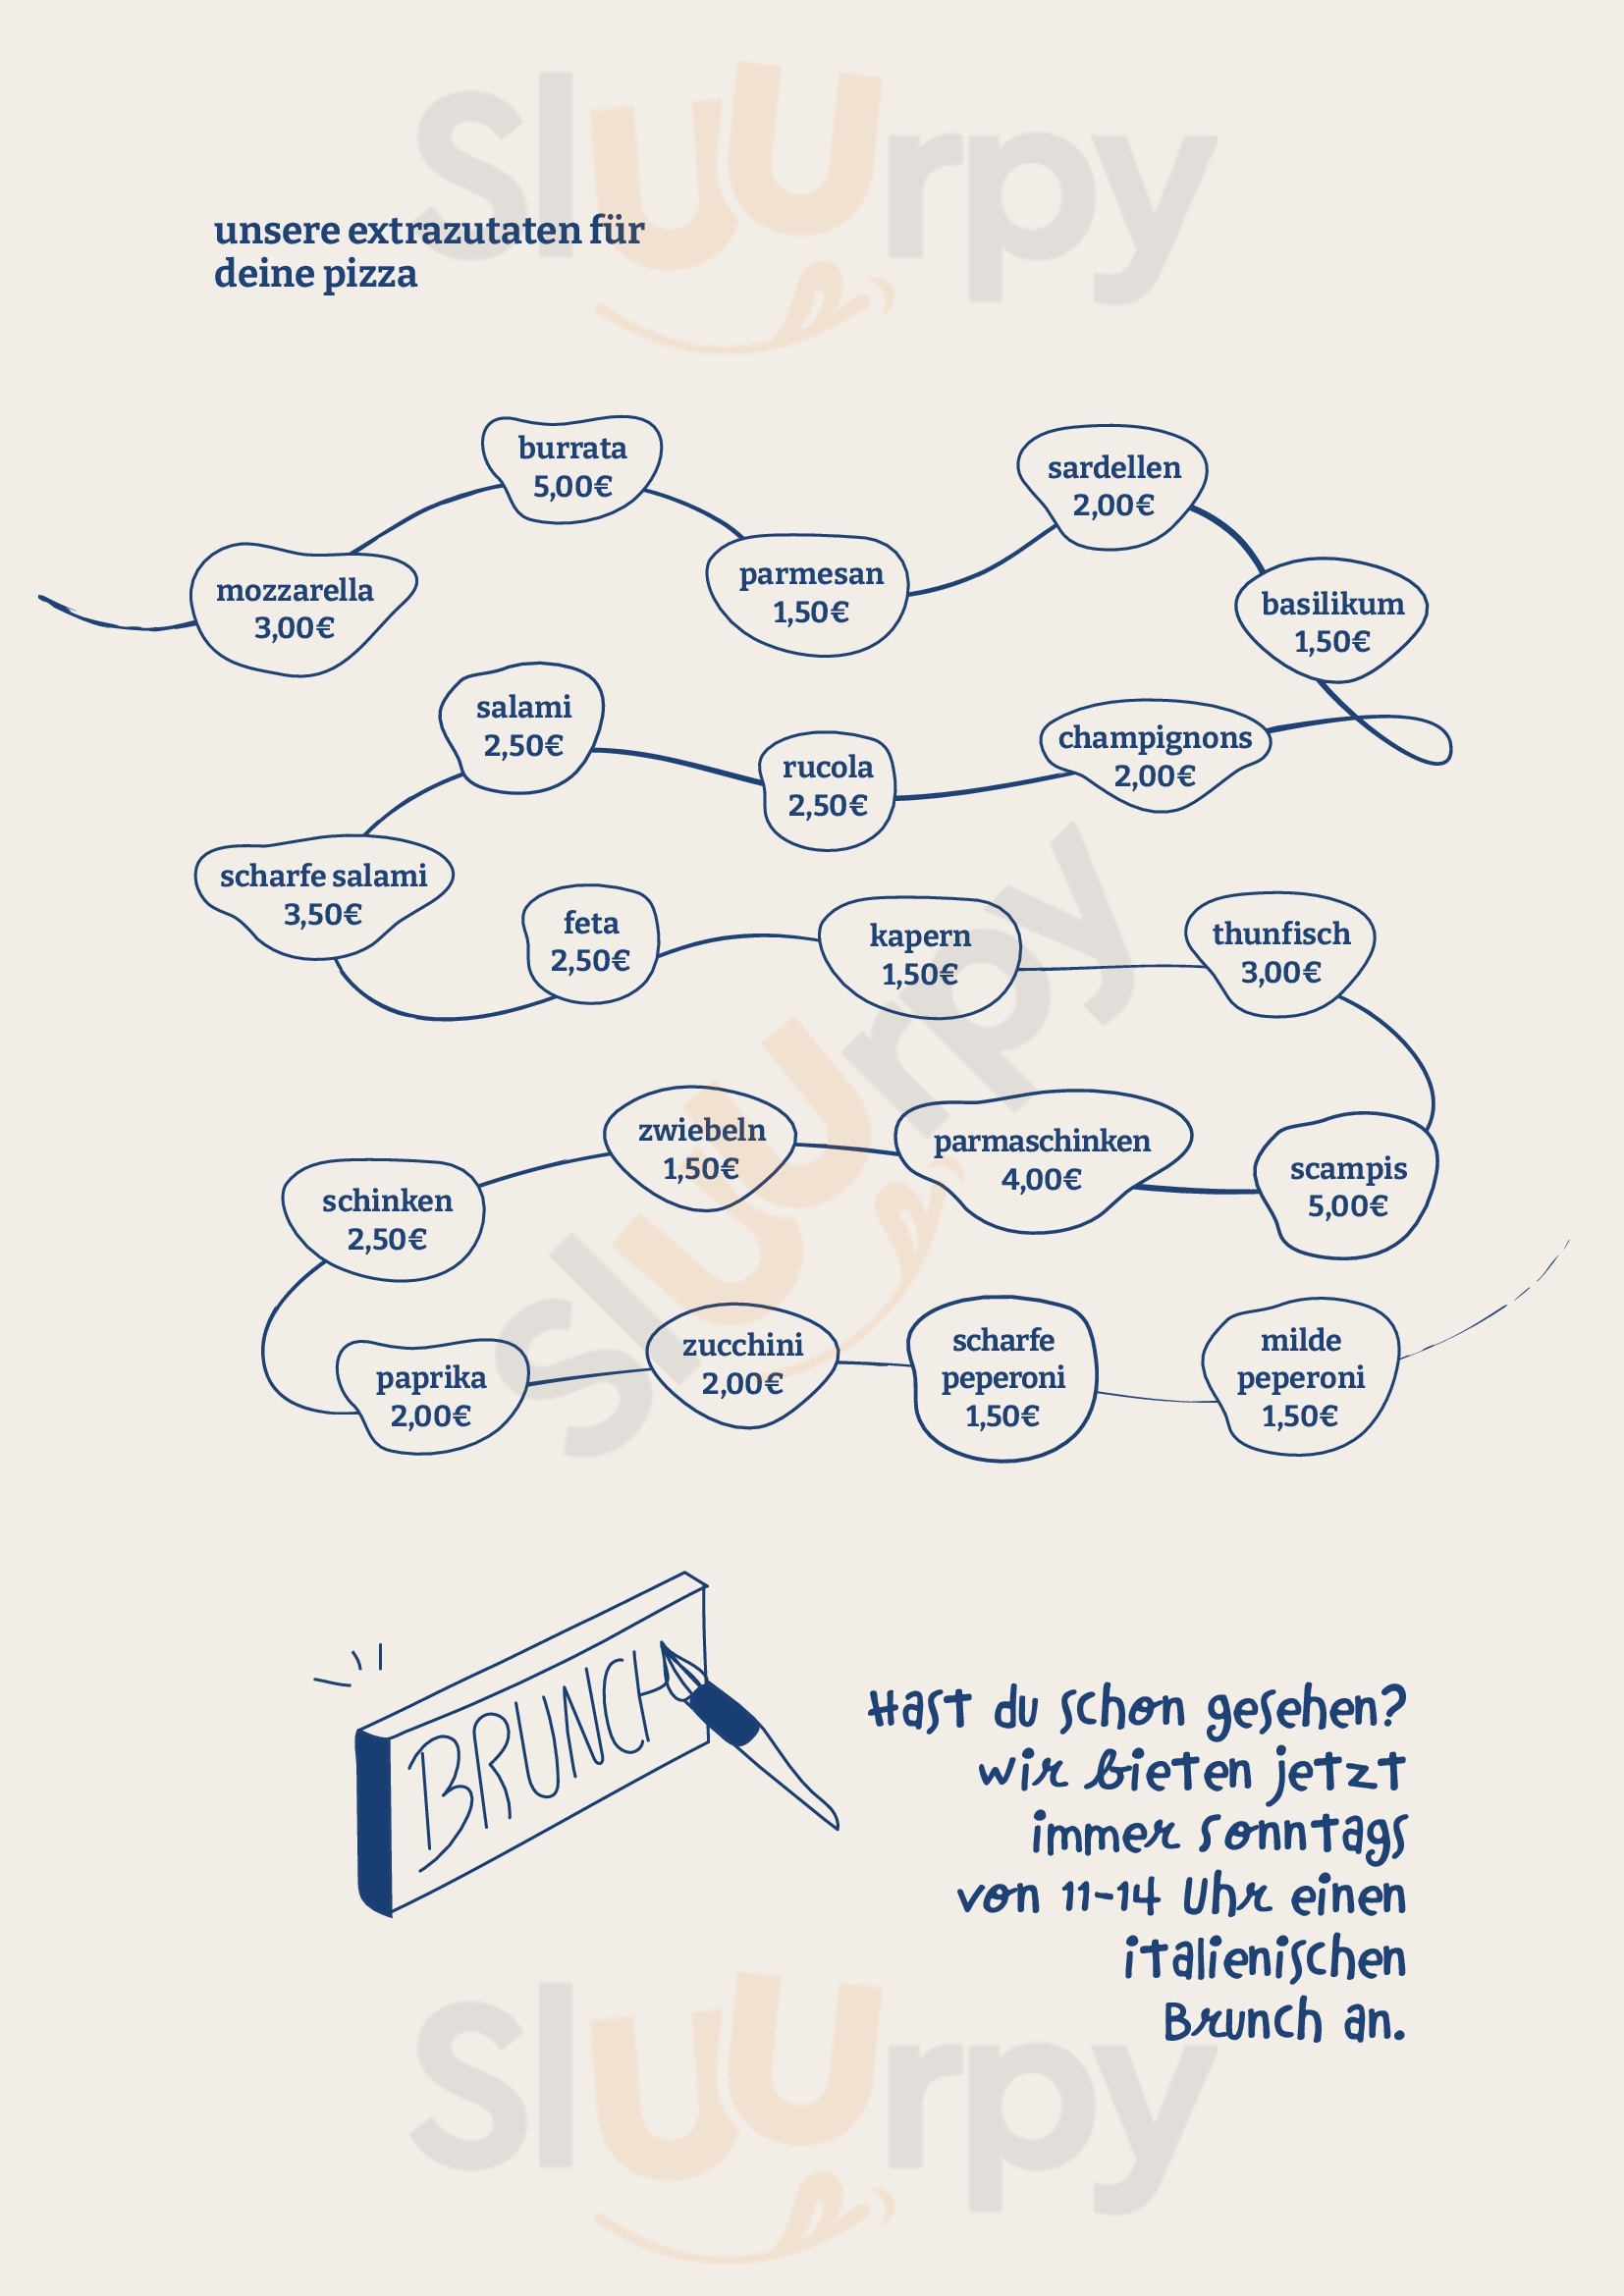 Sluurpy
unsere extrazutaten für
deine pizza
burrata
5,00€
sardellen
2,00€
mozzarella
3,00€
parmesan
1,50€
basilikum
1,50€
salami
2,50€
rucola
2,50€
champignons
2,00€
scharfe salami
3,50€
feta
2,50€
kapern
1,50€
thunfisch
3,00€
Sluurpy
schinken
2,50€
zwiebeln
1,50€
parmaschinken
4,00€
scampis
5,00€
paprika
2,00€
zucchini
2,00€
scharfe
peperoni
1,50€
milde
peperoni
1,50€
BRUNCH
Hast du schon gesehen?
wir bieten jetzt
immer sonntags
von 11-14 Uhr einen
italienischen
Brunch an.
Sluurpy